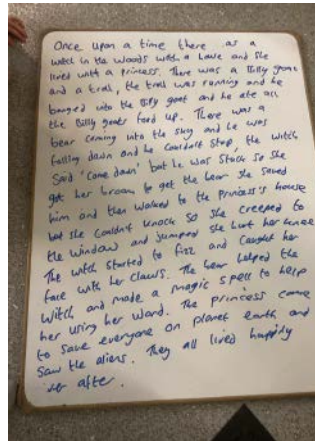 Once upon a time there as a
witch in the woods with a house and she
lived with a princess. There was a Billy goat
and a troll, the troll was running and he
banged into the Billy goat and he ate all
the Billy goats food up. There was a
bear coming into the sky and he was
falling down and he couldn't stop, the witch
said 'come down' but he was stuck so she
got her broom to get the bear she saved
him and then walked to the Princess's house
but she couldn't knock so she creeped to
the window and jumped she hurt her knee
The witch started to fizz and caught her
face with her claws. The bear helped the
witch and made a magic spell to help
her using her wand. The princess came
to save everyone on planet earth and
saw the aliens. They all lived happily
ver after.